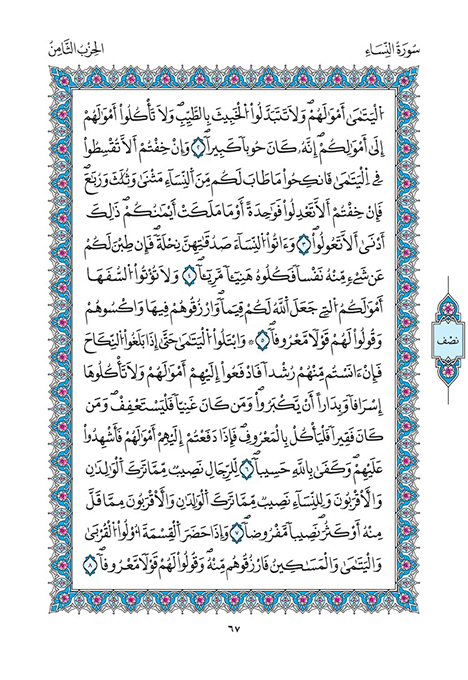 سُورَةُ النِّسَاءِ
الحِزْبُ الثَّامِنُ
اَ۬لْيَتَٰم۪ىٰٓ أَمْوَٰلَهُمْۖ وَلَا تَتَبَدَّلُواْ اُ۬لْخَبِيثَ بِالطَّيِّبِۖ وَلَا تَأْكُلُوٓاْ أَمْوَٰلَهُمُۥٓ
إِلَىٰٓ أَمْوَٰلِكُمُۥٓۖ إِنَّهُۥ كَانَ حُوباٗ كَبِيراٗۖ ٢ وَإِنْ خِفْتُمُۥٓ أَلَّا تُقْسِطُواْ
فِے اِ۬لْيَتَٰمَىٰ فَانكِحُواْ مَا طَابَ لَكُم مِّنَ اَ۬لنِّسَآءِ مَثْنَىٰ وَثُلَٰثَ وَرُبَٰعَۖ
فَإِنْ خِفْتُمُۥٓ أَلَّا تَعْدِلُواْ فَوَٰحِدَةً أَوْ مَا مَلَكَتَ اَيْمَٰنُكُمْۖ ذَٰلِكَ
أَدْنَىٰٓ أَلَّا تَعُولُواْۖ ٣ وَءَاتُواْ اُ۬لنِّسَآءَ صَدُقَٰتِهِنَّ نِحْلَةٗۖ فَإِن طِبْنَ لَكُمْ
عَن شَےْءٖ مِّنْهُ نَفْساٗ فَكُلُوهُ هَنِيٓـٔاٗ مَّرِيٓـٔاٗۖ ٤ وَلَا تُؤْتُواْ اُ۬لسُّفَهَآ
أَمْوَٰلَكُمُ اُ۬لتِے جَعَلَ اَ۬للَّهُ لَكُمْ قِيَماٗ وَارْزُقُوهُمْ فِيهَا وَاكْسُوهُمْ
وَقُولُواْ لَهُمْ قَوْلاٗ مَّعْرُوفاٗۖ ٥ ۞ وَابْتَلُواْ اُ۬لْيَتَٰمَىٰ حَتَّىٰٓ إِذَا بَلَغُواْ اُ۬لنِّكَاحَ
فَإِنَ اٰنَسْتُم مِّنْهُمْ رُشْداٗ فَادْفَعُوٓاْ إِلَيْهِمُۥٓ أَمْوَٰلَهُمْۖ وَلَا تَأْكُلُوهَآ
إِسْرَافاٗ وَبِدَاراً أَنْ يَّكْبَرُواْۖ وَمَن كَانَ غَنِيّاٗ فَلْيَسْتَعْفِفْۖ وَمَن
كَانَ فَقِيراٗ فَلْيَأْكُلْ بِالْمَعْرُوفِۖ فَإِذَا دَفَعْتُمُۥٓ إِلَيْهِمُۥٓ أَمْوَٰلَهُمْ فَأَشْهِدُواْ
عَلَيْهِمْۖ وَكَفَىٰ بِاللَّهِ حَسِيباٗۖ ٦ لِّلرِّجَالِ نَصِيبٞ مِّمَّا تَرَكَ اَ۬لْوَٰلِدَٰنِ
وَالْأَقْرَبُونَ وَلِلنِّسَآءِ نَصِيبٞ مِّمَّا تَرَكَ اَ۬لْوَٰلِدَٰنِ وَالْأَقْرَبُونَ مِمَّا قَلَّ
مِنْهُ أَوْ كَثُرَۖ نَصِيباٗ مَّفْرُوضاٗۖ ٧ وَإِذَا حَضَرَ اَ۬لْقِسْمَةَ أُوْلُواْ اُ۬لْقُرْبَىٰ
وَالْيَتَٰمَىٰ وَالْمَسَٰكِينُ فَارْزُقُوهُم مِّنْهُۖ وَقُولُواْ لَهُمْ قَوْلاٗ مَّعْرُوفاٗۖ ٨
نصف
٦٧